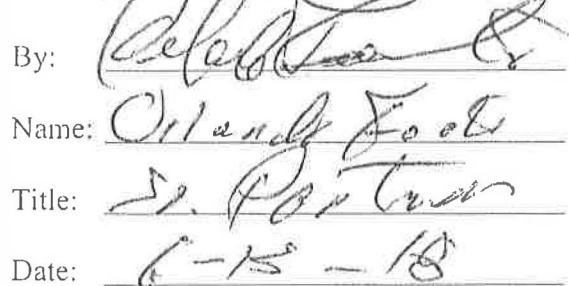 By:
Name: Orlando Foote
Title: Sr. Partner
Date: 6-15-18